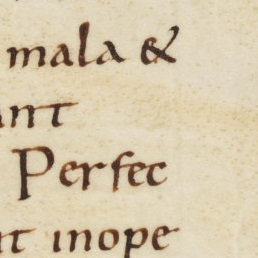 mala &
ant
Perfec
nt inope